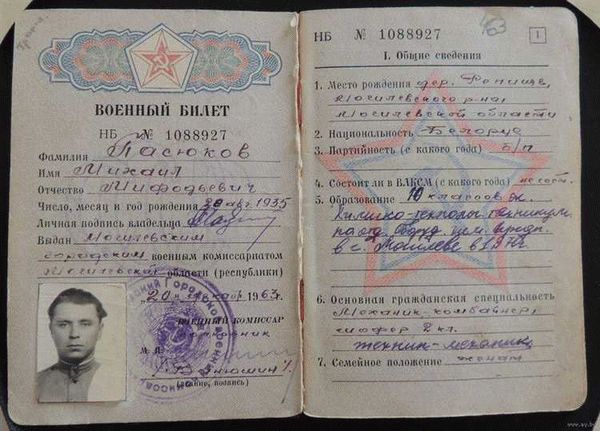 ВОЕННЫЙ БИЛЕТ
НБ № 1088927
Фамилия Пасюков
Имя Михаил
Отчество Мифодьевич
Число, месяц и год рождения 20 авг 1935
Личная подпись владельца
Выдан Могилевским
городским военным комиссариатом
Могилевской области (республики)
20 декабря 1963г.
ВОЕННЫЙ КОМИССАР
М.П.
(звание, подпись)
НБ № 1088927
1
I. Общие сведения
1. Место рождения дер.
Могилевского р-на,
Могилевской области
2. Национальность Белорус
3. Партийность (с какого года) б/п
4. Состоит ли в ВЛКСМ (с какого года) не сост.
5. Образование 10 классов
техникум
в г. Могилеве в
6. Основная гражданская специальность
Механик-комбайнер,
шофер 2 кл.
техник-механик
7. Семейное положение женат